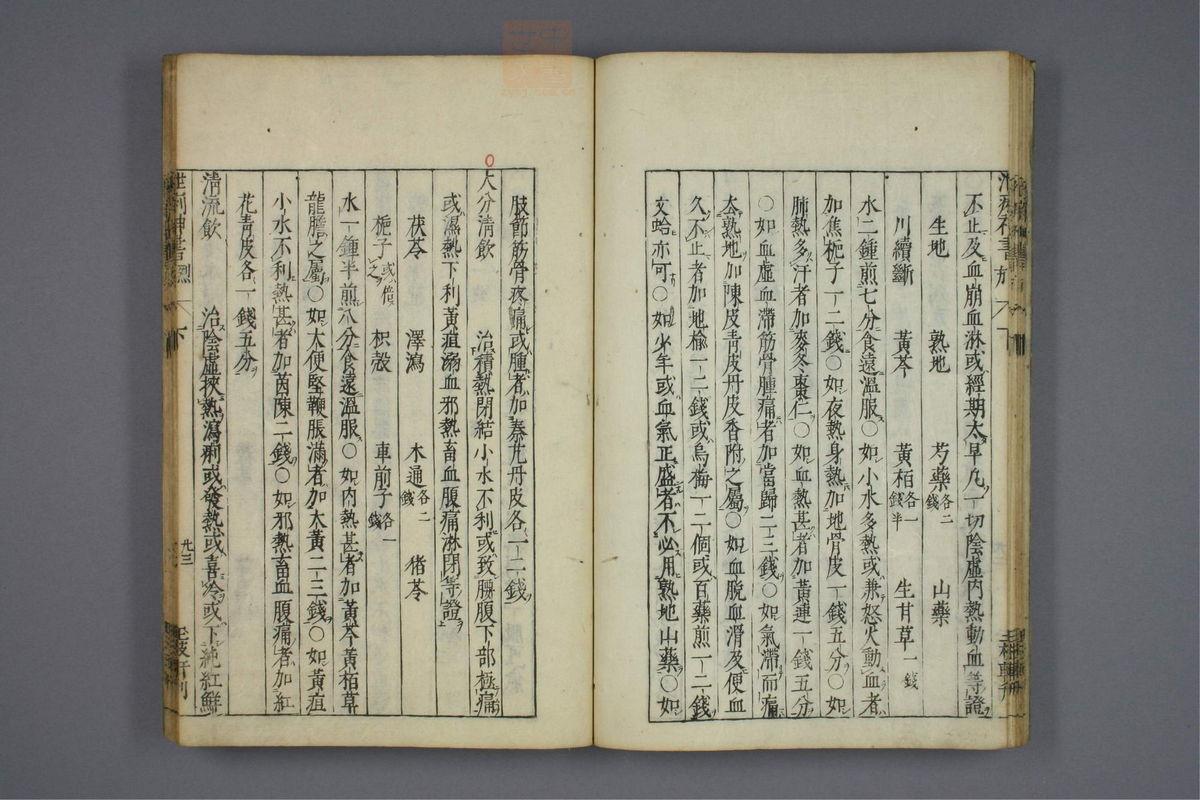 不止及血崩血淋或經期太早凡一切陰虛內熱動血等證
生地 熟地 芍藥各二錢 山藥
川續斷 黃芩 黃栢各一錢半 生甘草一錢
水二鍾煎七分食遠溫服○如小水多熱或兼怒火動血者
加焦梔子一二錢○如夜熱身熱加地骨皮一錢五分○如
肺熱多汗者加麥冬棗仁○如血熱甚者加黃連一錢五分
○如血虛血滯筋骨腫痛者加當歸二三錢○如氣滯而痛
去熟地加陳皮青皮丹皮香附之屬○如血脫血滑及便血
久不止者加地榆一二錢或烏梅一二個或百藥煎一二錢
文蛤亦可○如少年或血氣正盛者不必用熟地山藥○如
肢節筋骨疼痛或腫者加秦艽丹皮各一二錢
大分清飲 治積熱閉結小水不利或致腰腹下部極痛
或濕熱下利黃疸溺血邪熱畜血腹痛淋閉等證
茯苓 澤瀉 木通各二錢 猪苓
梔子或倍之 枳殼 車前子各一錢
水一鍾半煎八分食遠溫服○如內熱甚者加黃芩黃栢草
龍膽之屬○如大便堅鞕脹滿者加大黃二三錢○如黃疸
小水不利熱甚者加茵陳二錢○如邪熱畜血腹痛者加紅
花青皮各一錢五分
清流飲 治陰虛挾熱瀉痢或發熱或喜冷或下純紅鮮